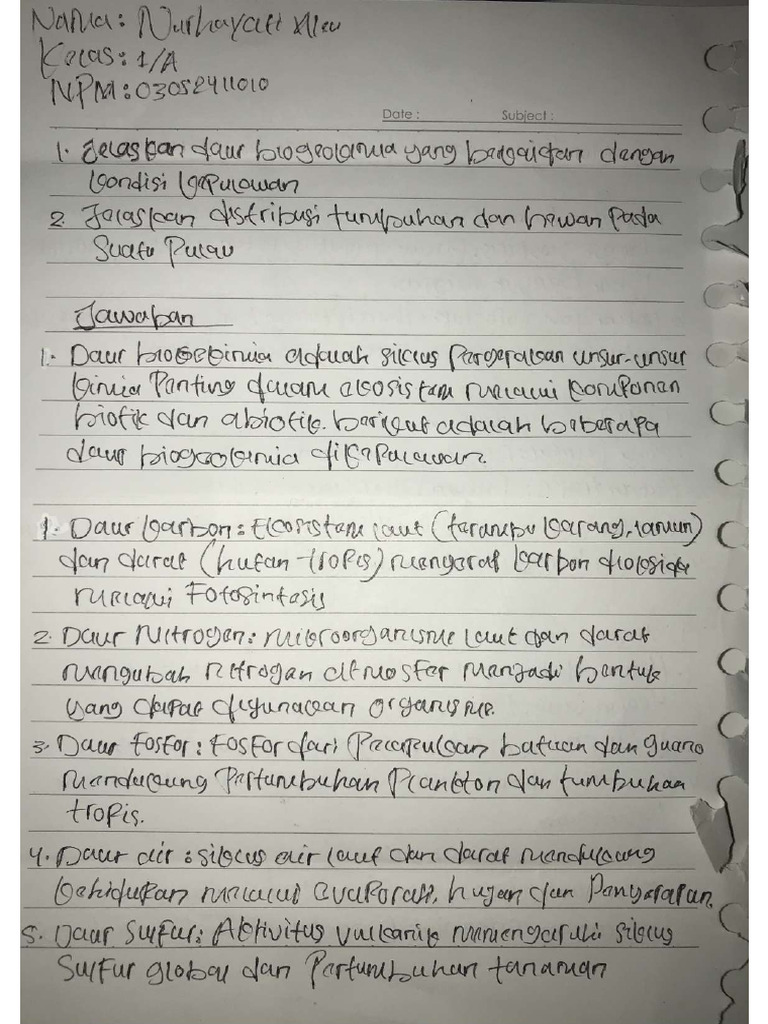 Nama: Nurhayati Aleu
Kelas: 1/A
NPM: 03052411010
Date : Subject :
1. Jelaskan daur biogeokimia yang berkaitan dengan
kondisi kepulauan
2. Jelaskan distribusi tumbuhan dan hewan pada
Suatu Pulau
Jawaban
1. Daur biogeokimia adalah siklus Pergerakan unsur-unsur
kimia Penting dalam ekosistem melalui komponen
biotik dan abiotik. berikut adalah beberapa
daur biogeokimia di kepulauan.
1. Daur karbon: Ekosistem laut (terumbu karang, lamun)
dan darat (hutan tropis) menyerap karbon dioksida
melalui Fotosintesis
2. Daur Nitrogen: mikroorganisme laut dan darat
mengubah nitrogen atmosfer menjadi bentuk
yang dapat digunakan organisme.
3. Daur fosfor: fosfor dari Pelapukan batuan dan guano
mendukung Pertumbuhan Plankton dan tumbuhan
tropis.
4. Daur air: siklus air laut dan darat mendukung
kehidupan melalui evaporasi, hujan dan Penyerapan.
5. Daur Sulfur: Aktivitas vulkanik memengaruhi siklus
Sulfur global dan Pertumbuhan tanaman